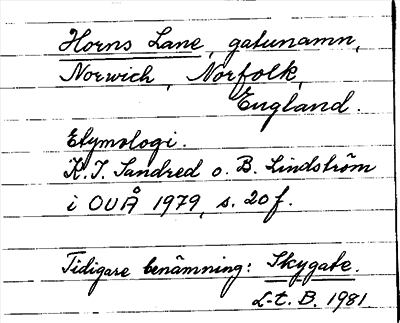 Horns Lane, gatunamn,
Norwich, Norfolk,
England.
Etymologi.
K.I. Sandred o. B. Lindström
i OUÅ 1979, s. 20 f.
Tidigare benämning: Skygate.
L-t. B. 1981